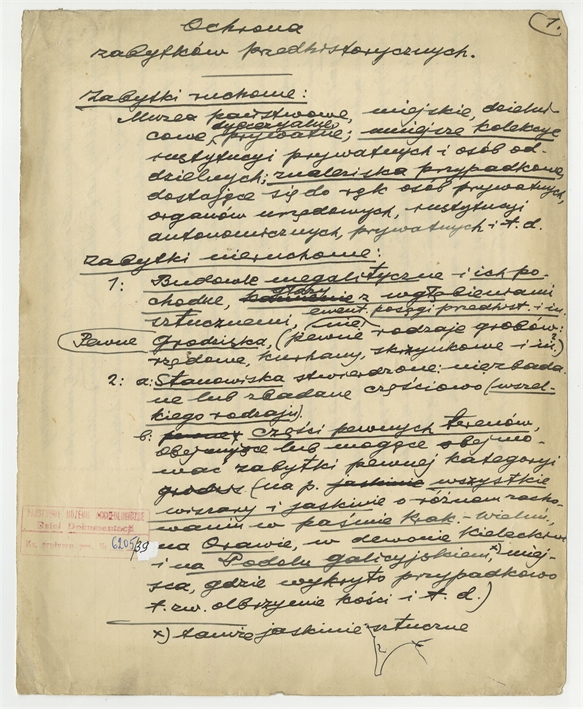 1.
Ochrona
zabytków przedhistorycznych.
Zabytki ruchome:
Muzea państwowe, miejskie, dzielni-
cowe, specyalne, prywatne; mniejsze kolekcye
instytucyi prywatnych i osób od-
dzielnych; znaleziska przypadkowe,
dostające się do rąk osób prywatnych,
organów urzędowych, instytucyi
autonomicznych, prywatnych i t. d.
Zabytki nieruchome:
1: Budowle megalityczne i ich po-
chodne, głazy z wgłębieniami
sztucznemi, ewent. posągi przedhist. i in.
Pewne Grodziska, (pewne rodzaje grobów:
rzędowe, kurhany, skrzynkowe i in.)
2: a: Stanowiska stwierdzone: niezbada-
ne lub zbadane częściowo (wszel-
kiego rodzaju).
b: części pewnych terenów,
obejmujące lub mogące obejmo-
wać zabytki pewnej kategoryi
(na p. jaskinie wszystkie
wiszary i jaskinie o różnem zacho-
waniu w paśmie Krak.-Wieluń.,
na Orawie, w dewonie Kieleckim
i na Podolu galicyjskiem x) miej-
sca, gdzie wykryto przypadkowo
t. zw. olbrzymie kości i t. d.)
x) tamże jaskinie sztuczne
PAŃSTWOWE MUZEUM ARCHEOLOGICZNE
Dział Dokumentacji
6205/39